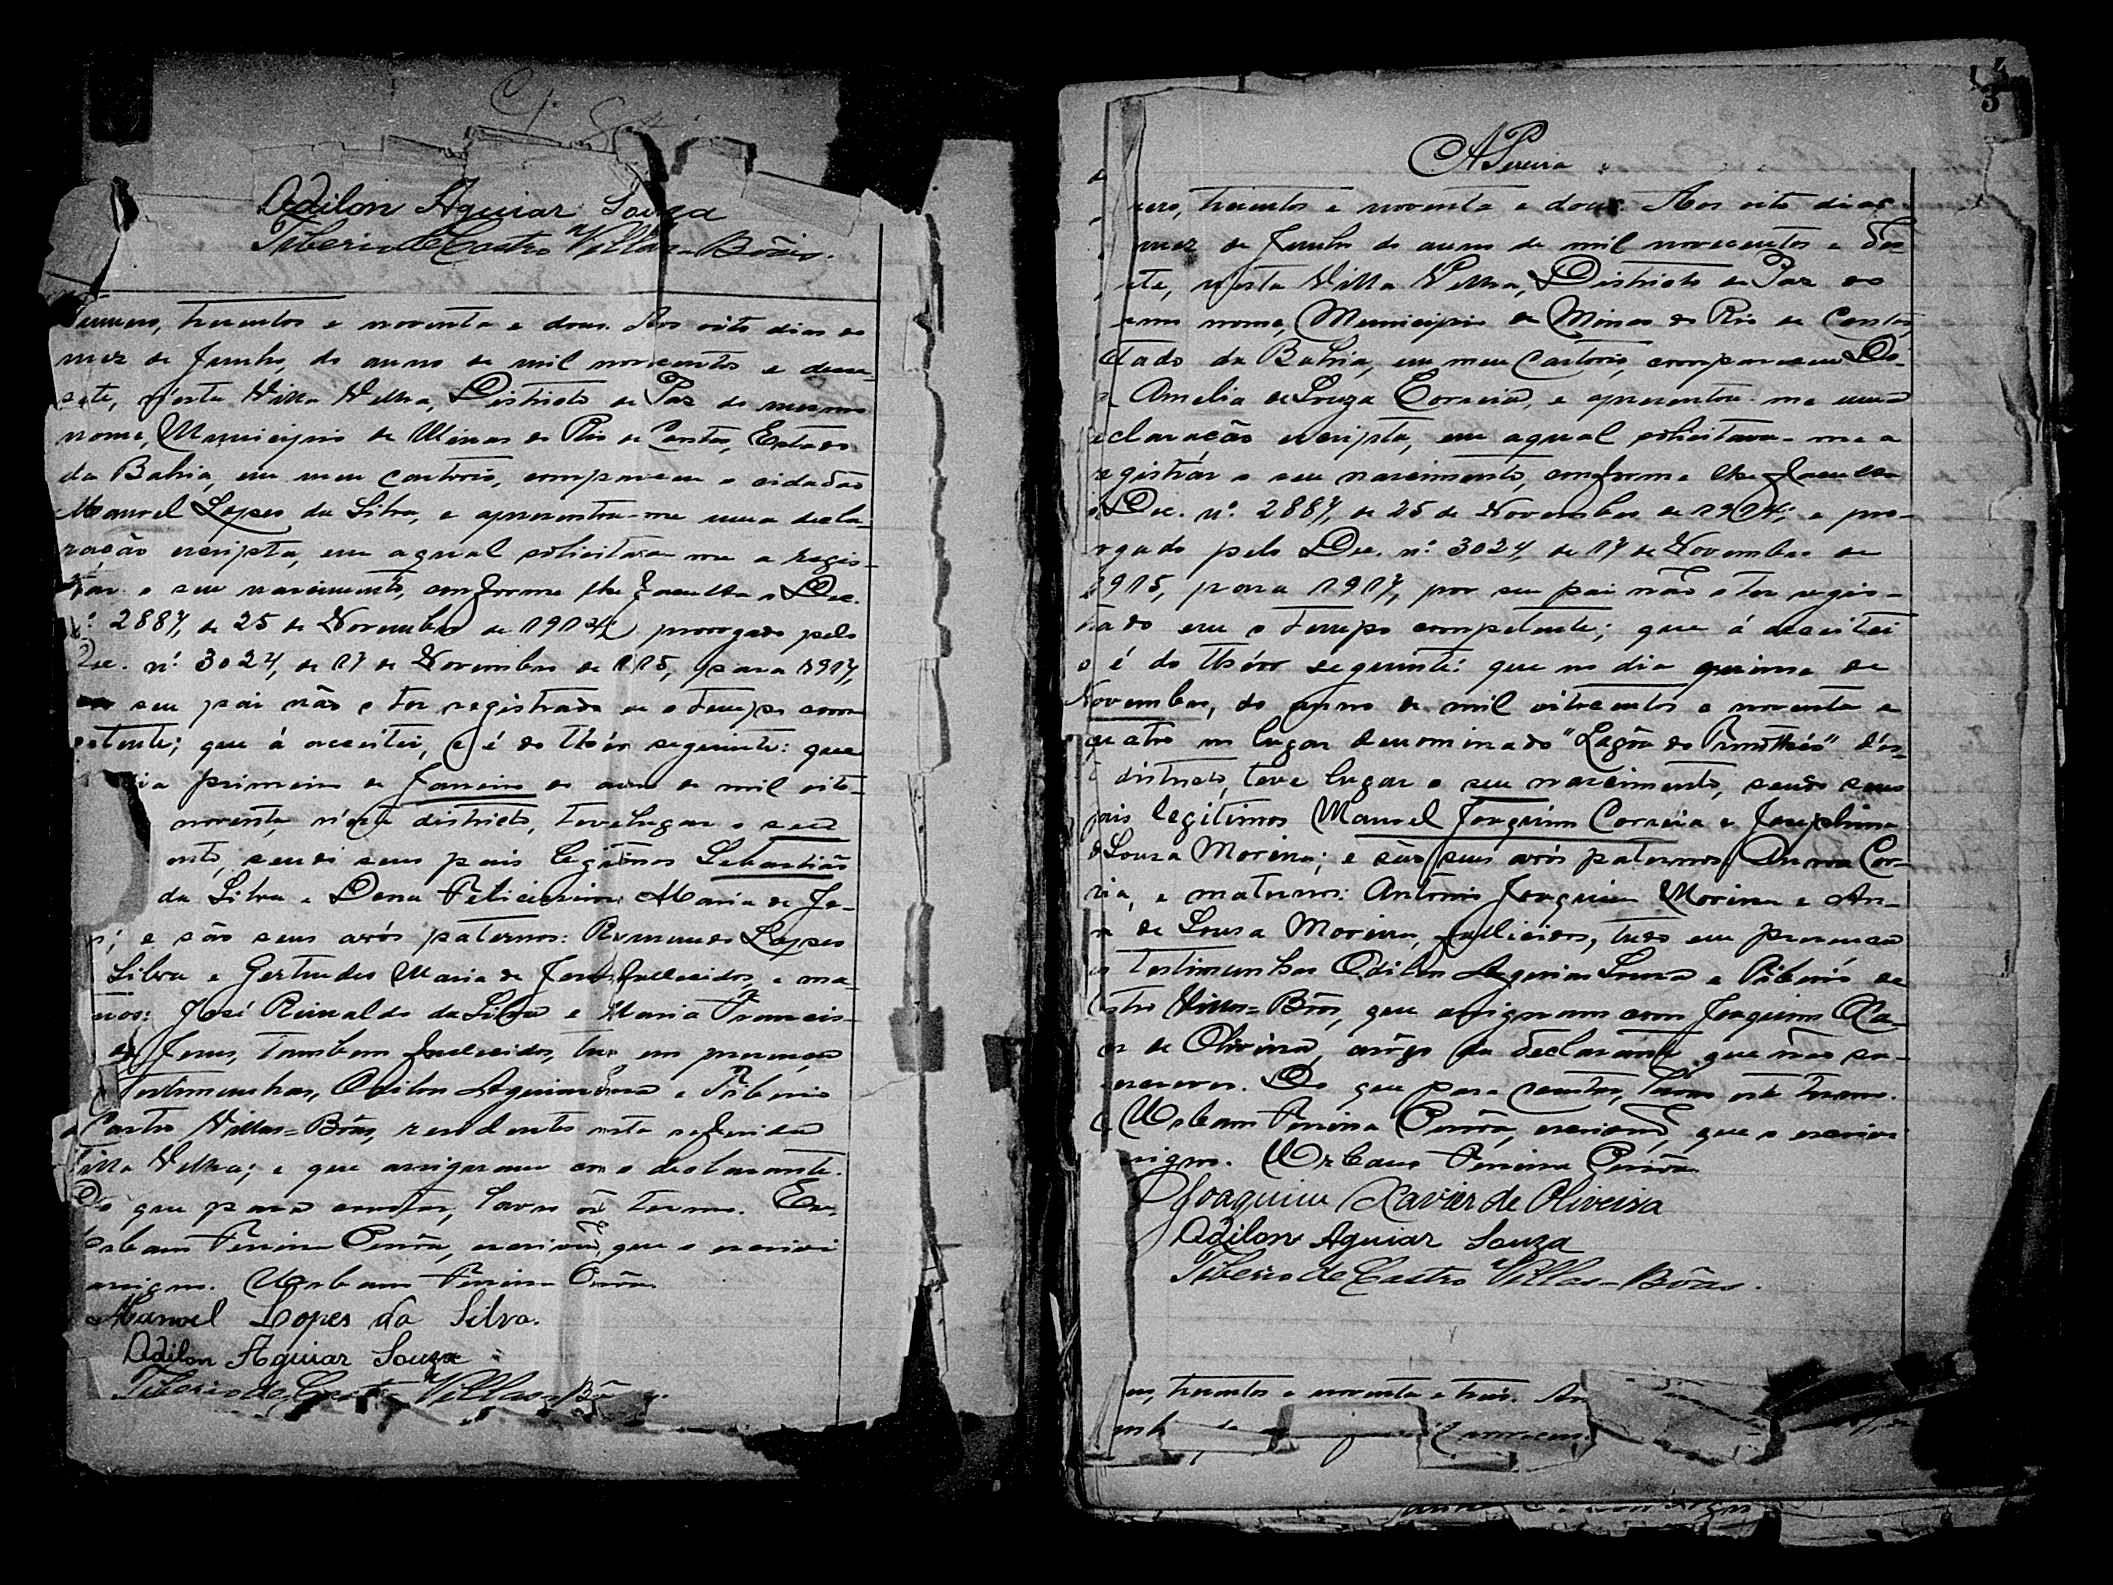 Odilon Aguiar Souza
Tiberio de Castro Villas-Bôas.
Numero, trecentos e noventa e dous. Aos oito dias do
mez de Junho, do anno de mil novecentos e deze-
sete, n'esta Villa Velha, Districto de Paz do mesmo
nome, Municipio de Minas do Rio de Contas, Estado
da Bahia, em meu cartorio, compareceu o cidadão
Manoel Lopes da Silva, e apresentou-me uma decla-
ração escripta, em a qual solicitava-me a regis-
trar o seu nascimento, conforme lhe faculta o Dec.
nº 2887, de 25 de Novembro de 1914, prorogado pelo
Dec. nº 3024, de 17 de Novembro de 1915, para 1917,
seu pai não o ter registrado em o tempo com-
petente; que á acceitei, e é do theór seguinte: que
dia primeiro de Janeiro do anno de mil oito-
noventa, n'este districto, teve lugar o seu
ento, sendo seus pais legitimos Sebastião
da Silva e Dona Feliciana Maria de Je-
s; e são seus avós paternos: Raymundo Lopes
Silva e Gertrudes Maria de Jesus, fallecidos, e ma-
nos: José Reinaldo da Silva e Maria Francis-
de Jesus, tambem fallecidos, tudo em presença
testimunhas, Odilon Aguiar Souza e Tiberio
Castro Villas-Bôas, residentes nesta referida
Villa Velha; e que assignaram com o declarante.
Do que para constar, lavro este termo. Eu
Urbano Pereira, escrivão, que o escrivi
assigno. Urbano Pereira
Manoel Lopes da Silva.
Odilon Aguiar Souza
Tiberio de Castro Villas-Bôas.
3
APereira
mero, trecentos e noventa e dous. Aos oito dias
mez de Junho do anno de mil novecentos e dese-
sete, nesta Villa Velha, Districto de Paz do
mesmo nome, Municipio de Minas do Rio de Contas,
Estado da Bahia, em meu cartorio, compareceu Do-
na Amelia de Souza Correia, e apresentou-me uma
declaração escripta, em a qual solicitava-me a
registrar o seu nascimento, conforme lhe faculta
o Dec. nº 2887, de 25 de Novembro de 1914, e pro-
rogado pelo Dec. nº 3024 de 17 de Novembro de
1915, para 1917, por seu pai não o ter regis-
trado em o tempo competente; que á acceitei
e é do theór seguinte: que no dia quinze de
Novembro, do anno de mil oitocentos e noventa e
quatro no lugar denominado "Lagôa do Timothéo" d'es-
te districto, teve lugar o seu nascimento, sendo seus
pais legitimos Manoel Joaquim Correia e Josephina
de Souza Moreira; e são seus avós paternos: Anna Cor-
reia, e maternos: Antonio Joaquim Moreira e An-
na de Souza Moreira, fallecidos, tudo em presença
as testimunhas Odilon Aguiar Souza e Tiberio de
Castro Villas-Bôas, que assignaram com Joaquim Xa-
vier de Oliveira, arôgo da declarante que não sa-
escrever. Do que para constar, lavro este termo.
Eu Urbano Pereira, escrivão, que o escrivi
assigno. Urbano Pereira
Joaquim Xavier de Oliveira
Odilon Aguiar Souza
Tiberio de Castro Villas-Bôas.
ero, trecentos e noventa e trez. Aos